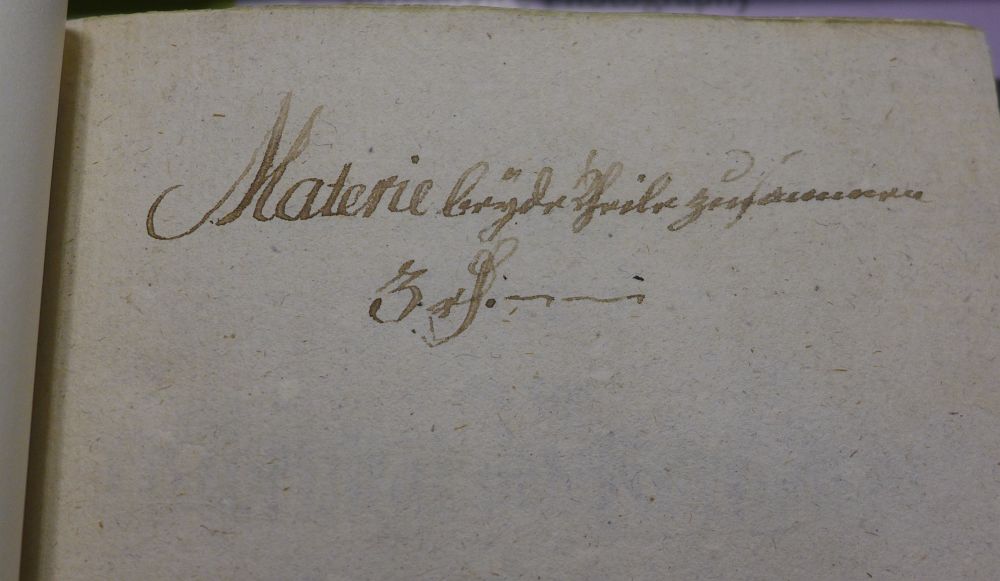 Materie beÿde Theile zusammen
3. rth. — —